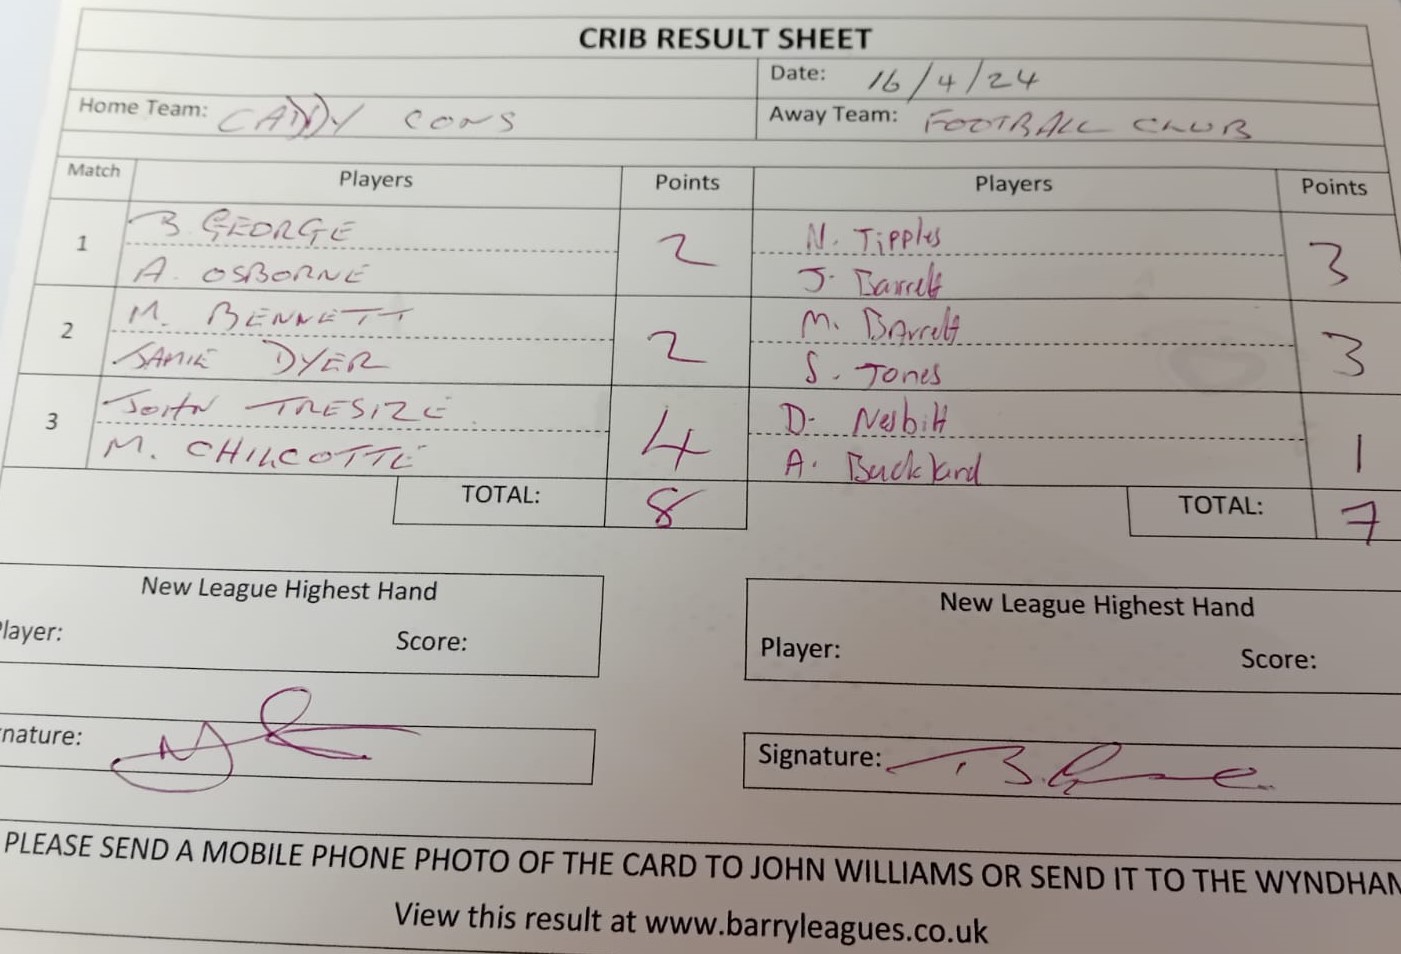 CRIB RESULT SHEET
Date: 16/4/24
Home Team: CADDY CONS Away Team: FOOTBALL CLUB
Match Players Points Players Points
1 B GEORGE 2 N. Tipples 3
A. OSBORNE J. Barrett
2 M. BENNETT 2 M. BArrett 3
JAMIE DYER S. Jones
3 JOHN TRESIZE 4 D- Nesbitt 1
M. CHILCOTTE A. Buckland
TOTAL: 8 TOTAL: 7
New League Highest Hand New League Highest Hand
layer: Score: Player: Score:
nature: Signature:
PLEASE SEND A MOBILE PHONE PHOTO OF THE CARD TO JOHN WILLIAMS OR SEND IT TO THE WYNDHAM
View this result at www.barryleagues.co.uk